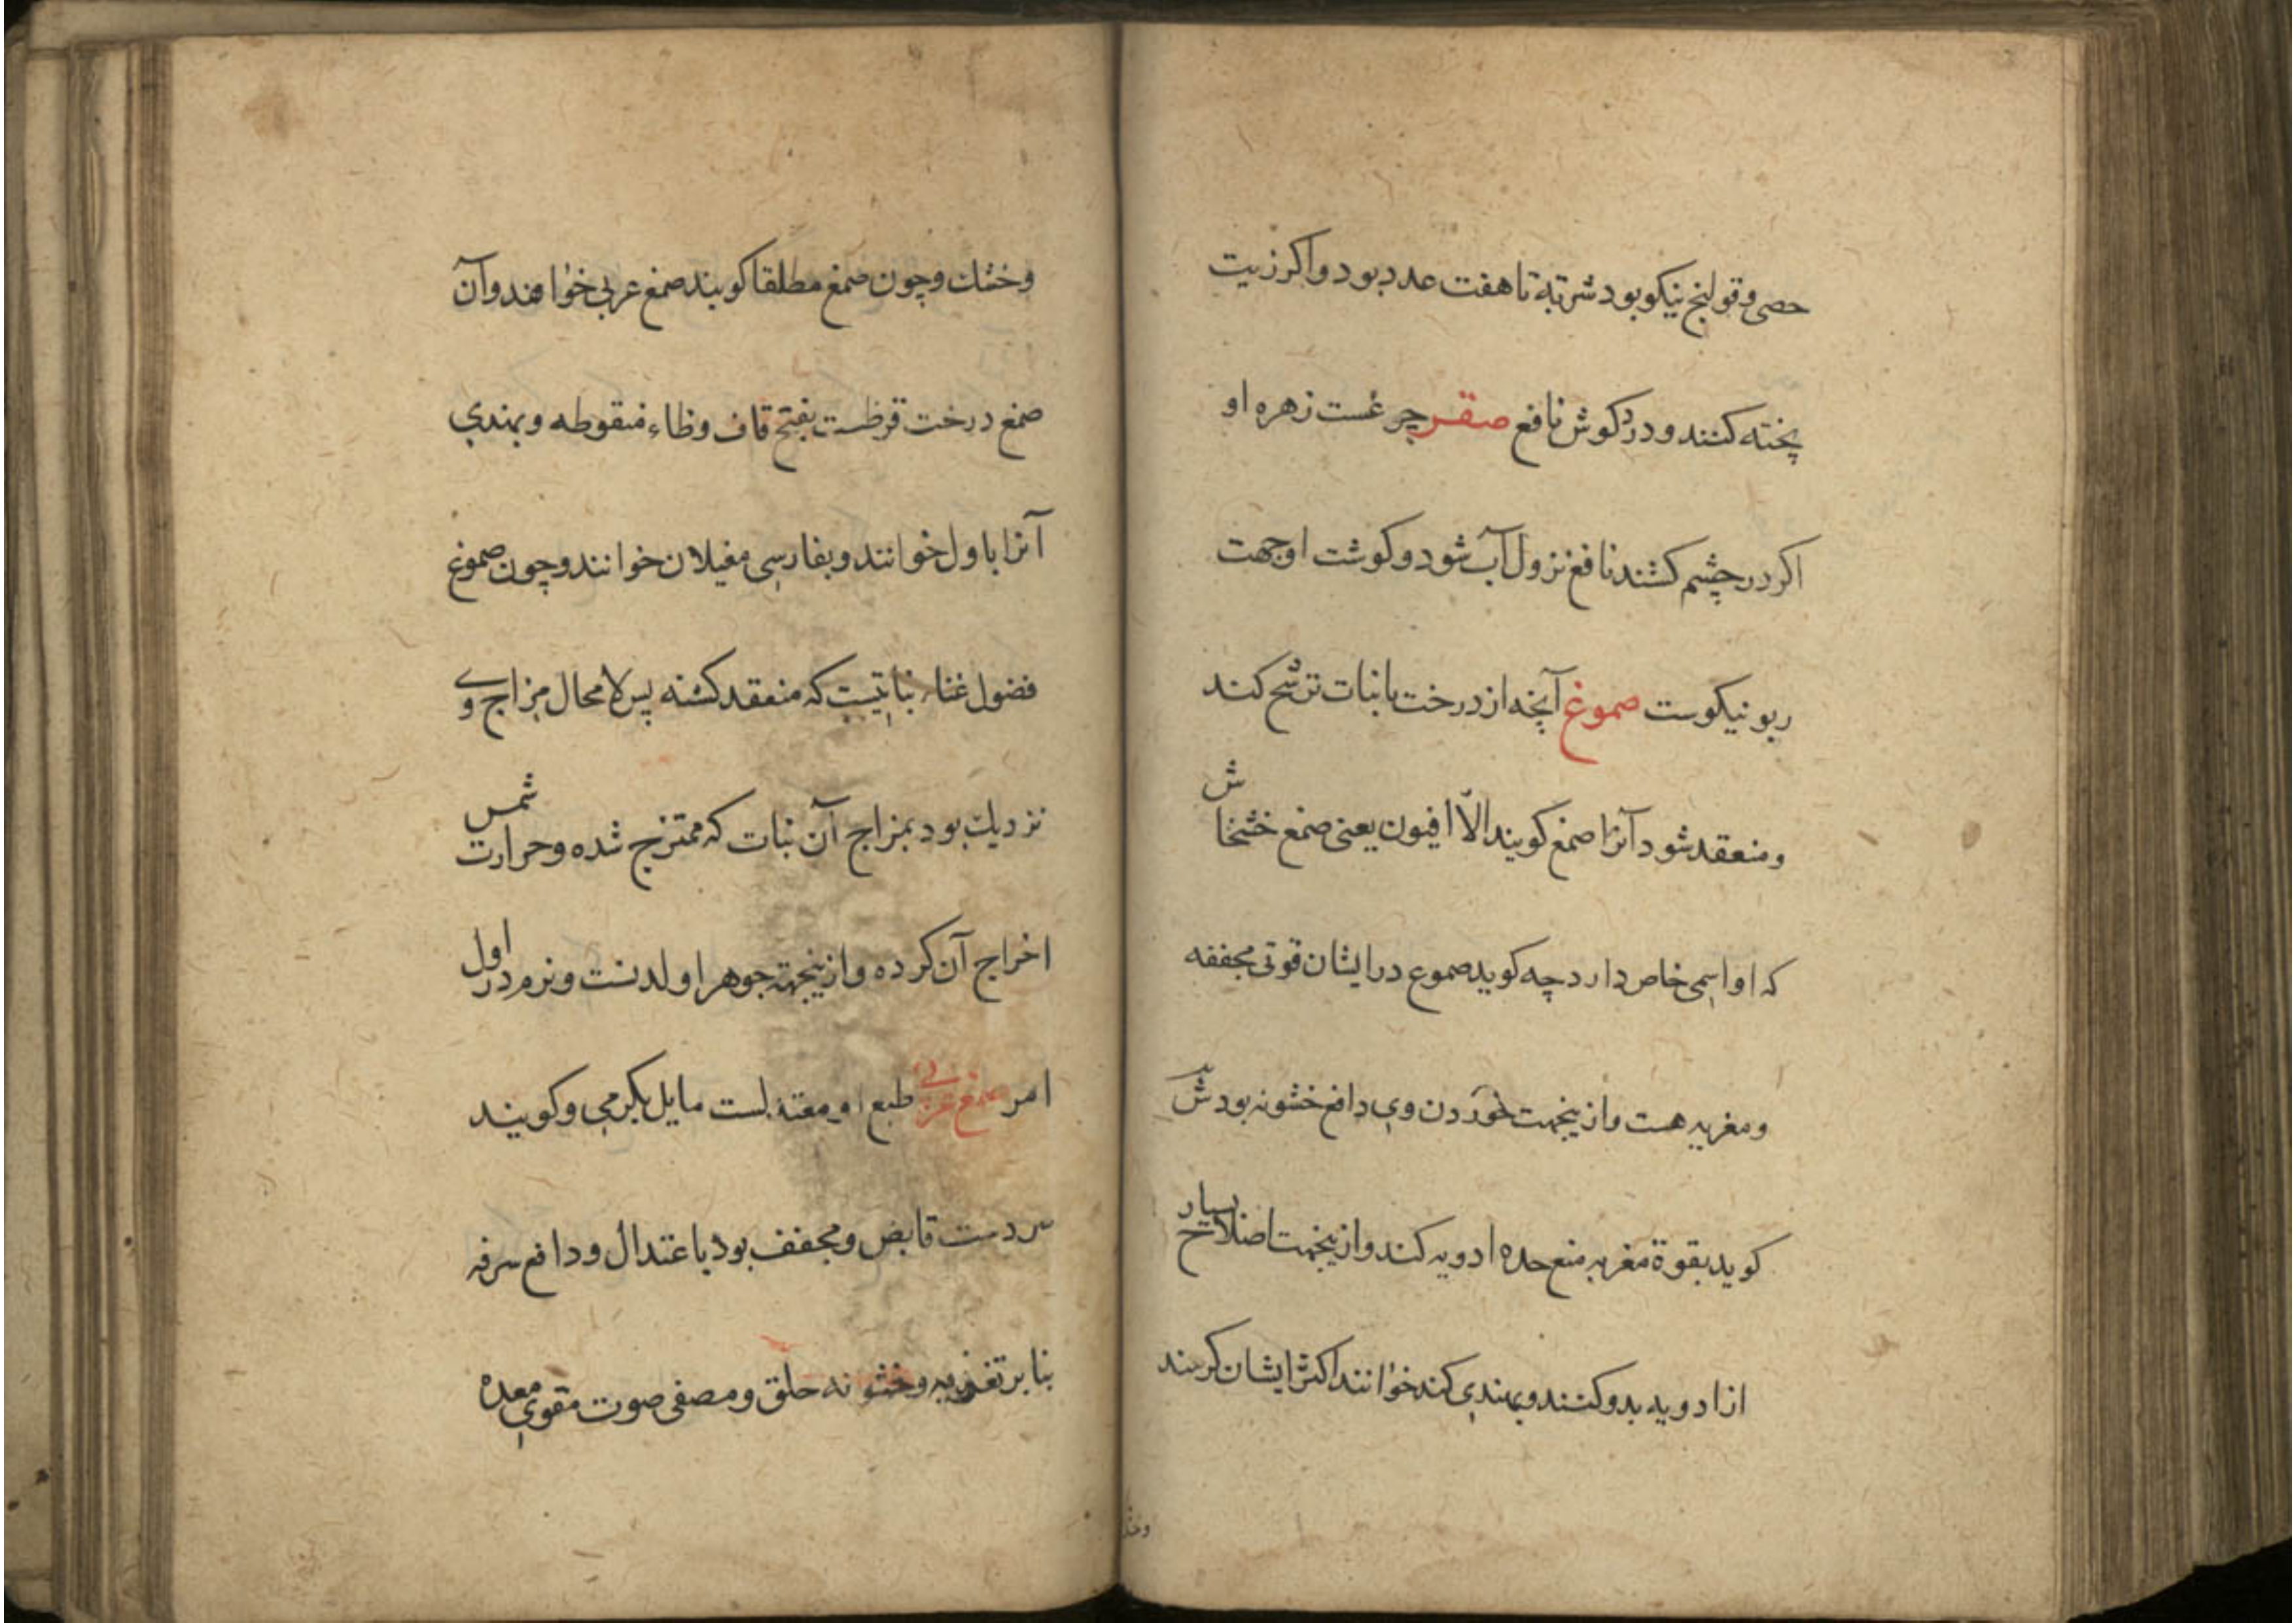 حصی و قولنج نیکو بود شربته تا هفت عدد بود و اکر زیت
پخته کنند و درد کوش نافع صقر چرغست زهره او
اکر در چشم کشند نافع نزول آب شود و کوشت او جهت
ربو نیکوست صموغ آنچه از درخت یا نبات ترشح کند
و منعقد شود آنرا صمغ کویند الّا افیون یعنی صمغ خشخاش
که او اسمی خاص دارد چه کوید صموع در ایشان قوتی مجففه
و مغریه هست و ازینجهت خوردن وی دافع خشونه بود
کوید بقوة مغریه منع حده ادویه کند و ازینجهت اصلاح بسیار
از ادویه بدو کنند و بهندی کند خوانند اکثر ایشان کرمند
وخشك
وخشك و چون صمغ مطلقا کویند صمغ عربی خواهند و آن
صمغ درخت قرظست بفتح قاف و ظاء منقوطه و بهندی
آنرا باول خوانند و بفارسی مغیلان خوانند و چون صموغ
فضول غذاء نباتیست که منعقد کشته پس لا محال مزاج وی
نزدیك بود بمزاج آن نبات که ممتزج شده و حرارت شمس
اخراج آن کرده و ازینجهة جوهر او لدنست و نرم در اول
امر صمغ عربی طبع او معتدلست مایل بکرمی و کویند
سردست قابض و مجفف بود باعتدال و دافع سرفه
بنابر تغریه و خشونه حلق و مصفی صوت مقوی معده